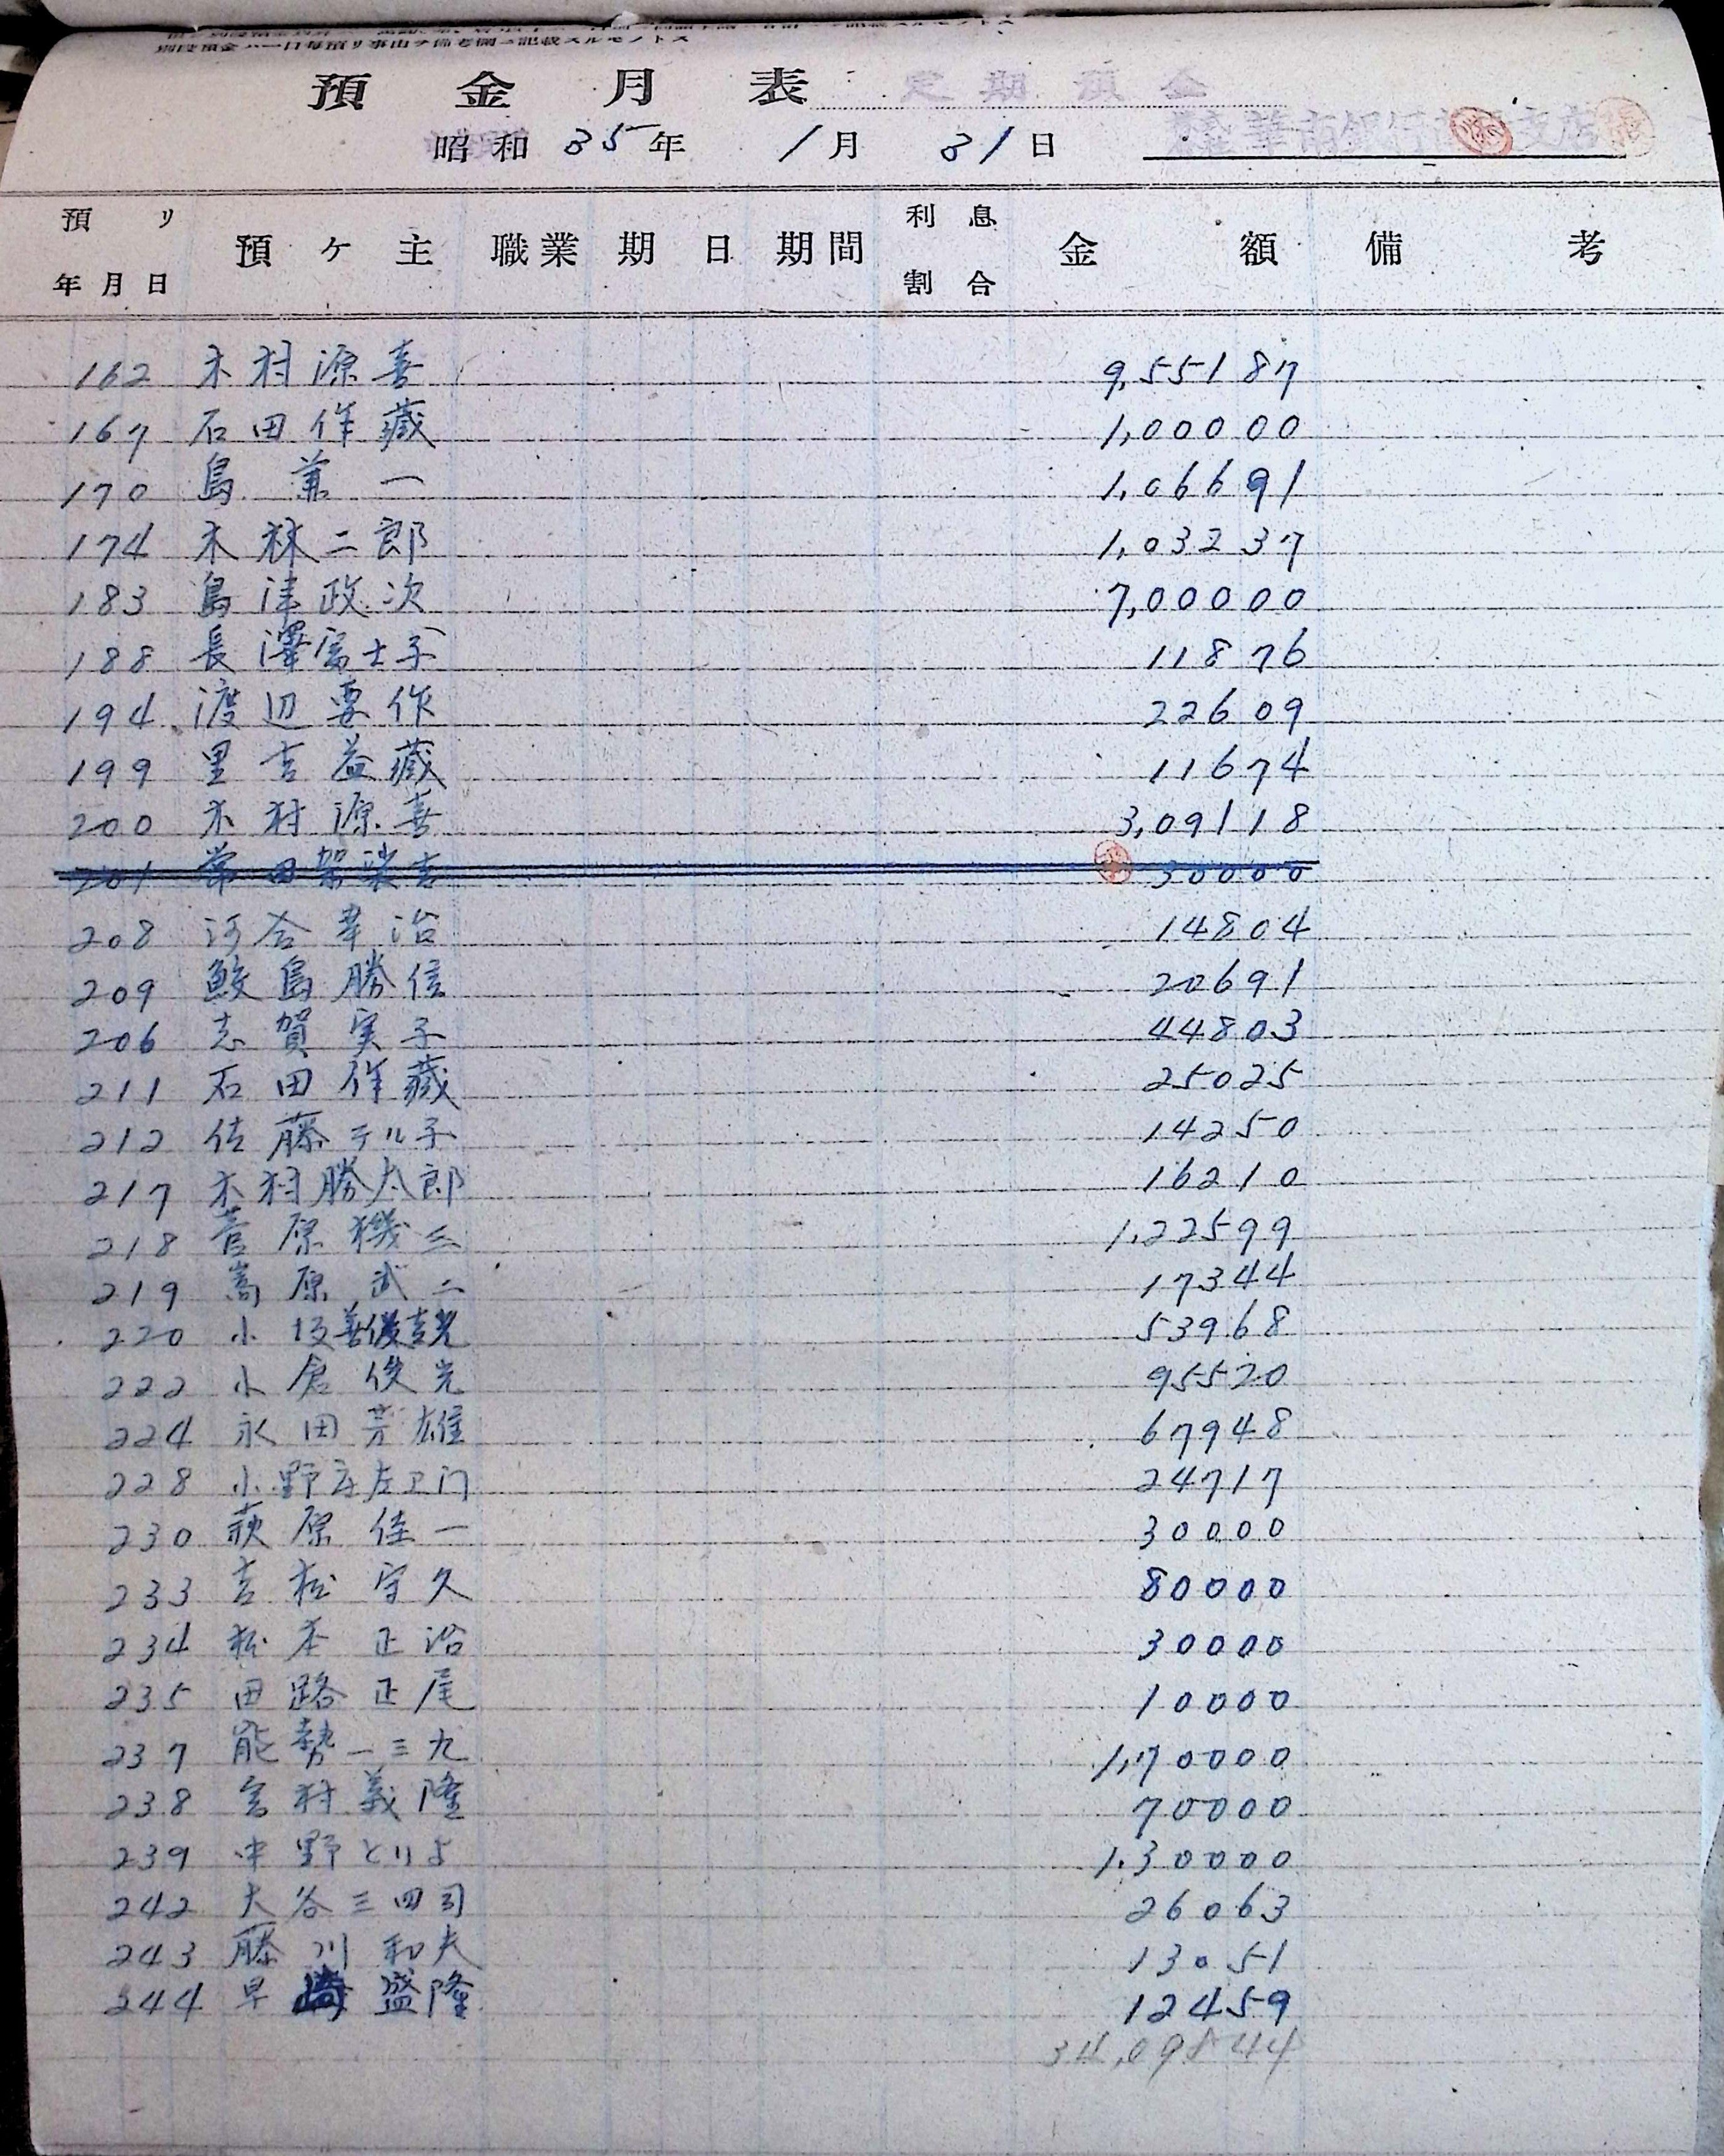 別段預金ハ一口每預リ事由ヲ備考欄ニ記載スルモノトス
預金月表 定期預金
昭和 35年 1月 31日 華南銀行 支店
預リ年月日 預ケ主 職業 期日 期間 利息割合 金額 備考
162 木村源喜 9,55187
167 石田作藏 1,00000
170 島兼一 1,06691
174 木林二郎 1,03237
183 島津政次 7,00000
188 長澤富士子 11876
194 渡辺要作 22609
199 里吉益藏 11674
200 木村源喜 3,09118
201 常田袈裟吉 30000
208 河合幸治 14804
209 鮫島勝信 20691
206 志賀実子 44803
211 石田作藏 25025
212 佐藤テル子 14250
217 木村勝太郎 16210
218 菅原機三 1,22599
219 嵩原武二 17344
220 小坂善 53968
222 小倉俊光 95520
224 永田芳雄 67948
228 小野庄左卫门 24717
230 萩原佳一 30000
233 吉松守久 80000
234 松本正治 30000
235 田路正尾 10000
237 能勢一三九 1,70000
238 宮村義隆 70000
239 中野とりよ 1.30000
242 大谷三四司 26063
243 藤川和夫 13051
244 早崎盛隆 12459
34,09844